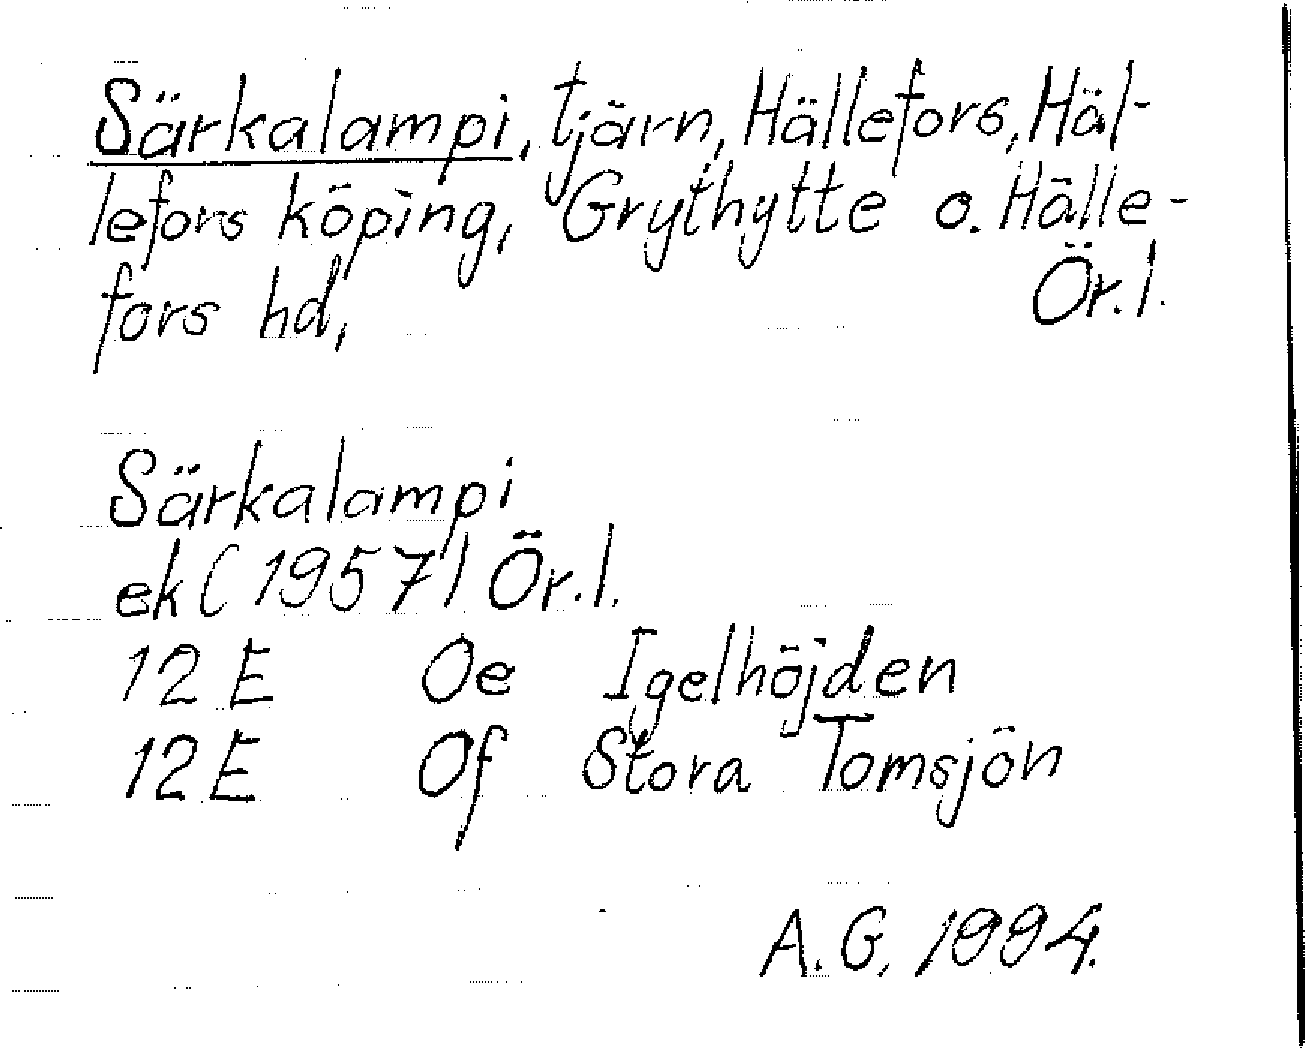 Särkalampi, tjärn, Hällefors, Häl-
lefors köping, Grythytte o. Hälle-
fors hd, Ör.l.
Särkalampi
ek (1957) Ör.l.
12 E Oe Igelhöjden
12 E Of Stora Tomsjön
A.G. 1994.